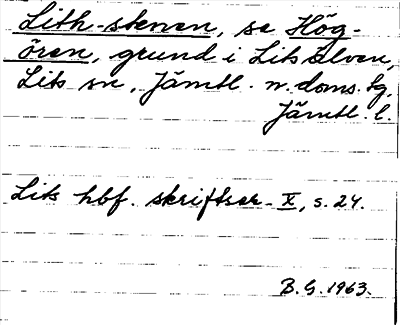 Lith-stenen, se Hög-
ören, grund i Litsälven,
Lits sn, Jämtl. n. doms. tg,
Jämtl. l.
Lits hbf. skriftser. X, s. 24.
B. G. 1963.